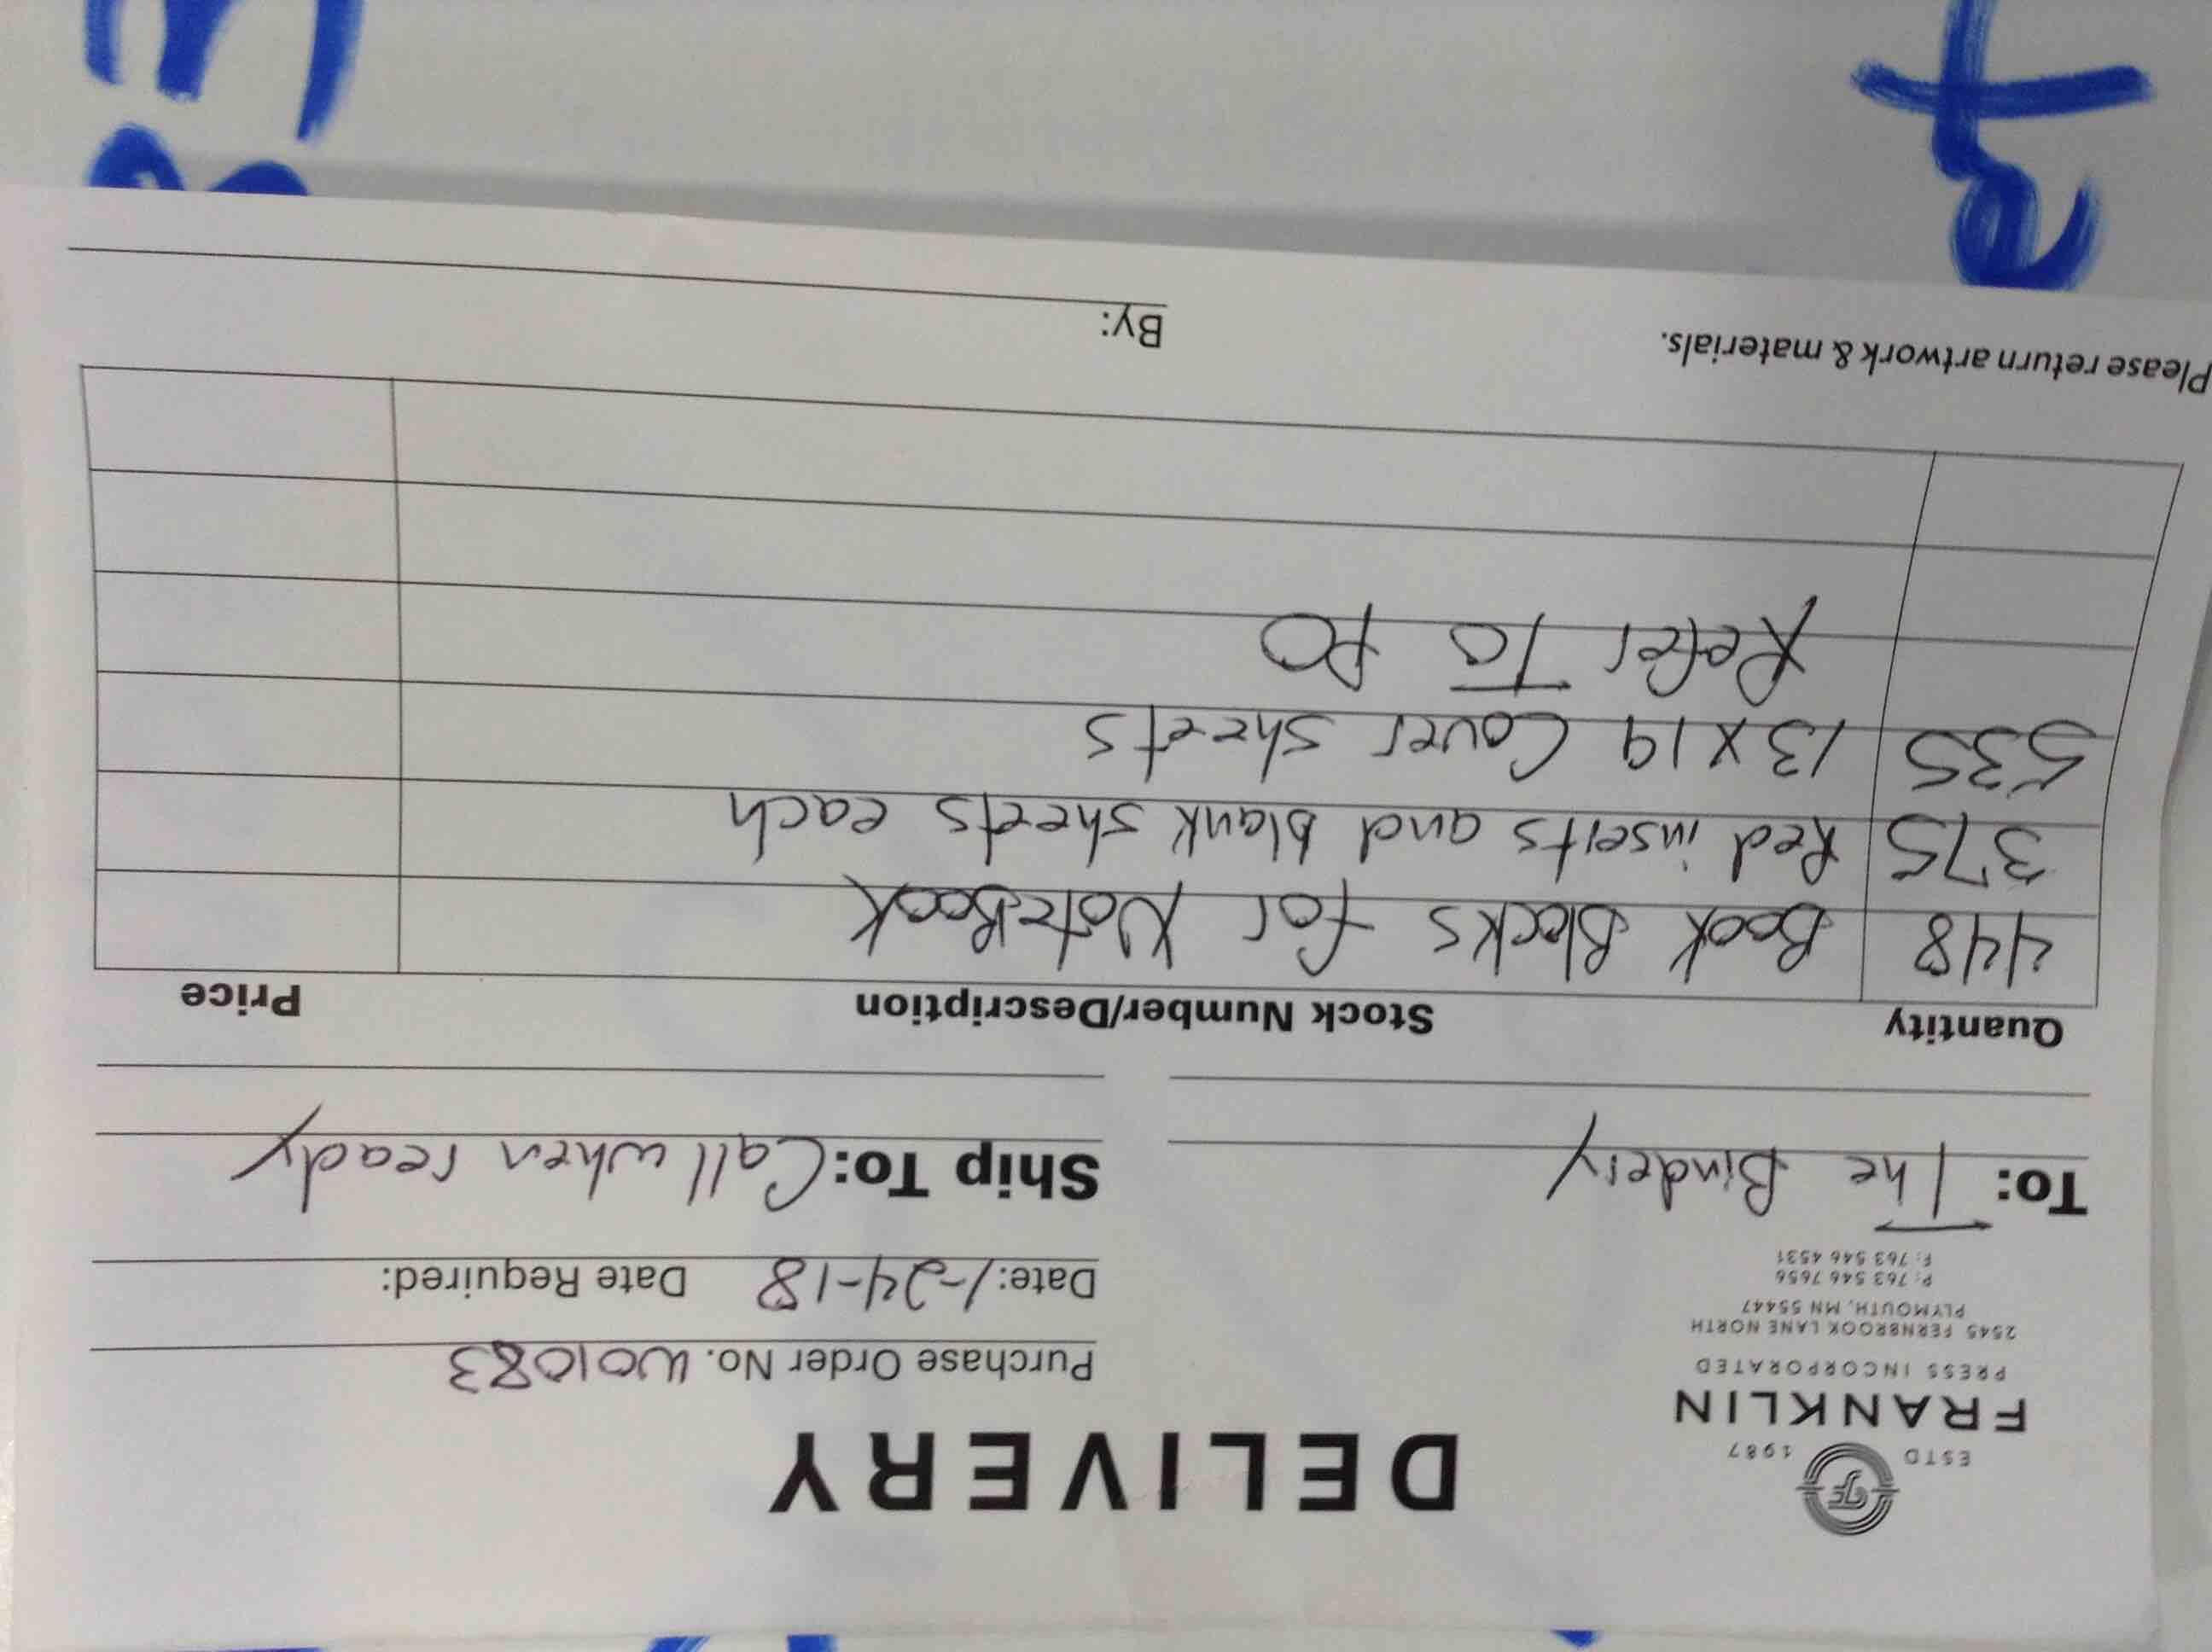 ESTD 1987
FRANKLIN
PRESS INCORPORATED
2545 FERNBROOK LANE NORTH
PLYMOUTH, MN 55447
P: 763 546 7656
F: 763 546 4531
DELIVERY
Purchase Order No. W01083
Date: 1-24-18 Date Required:
To: The Bindery
Ship To: Call when ready
Quantity Stock Number/Description Price
448 Book Blocks for NoteBook
375 Red inserts and blank sheets each
535 13x19 Cover sheets
Refer To PO
Please return artwork & materials.
By: